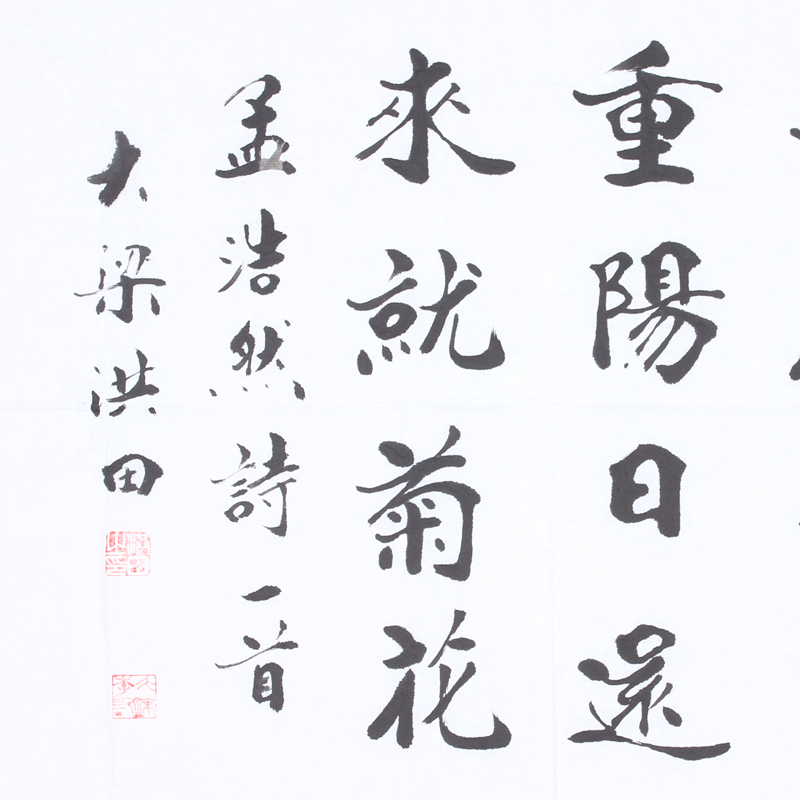 重陽日還
來就菊花
孟浩然詩一首
大梁洪田